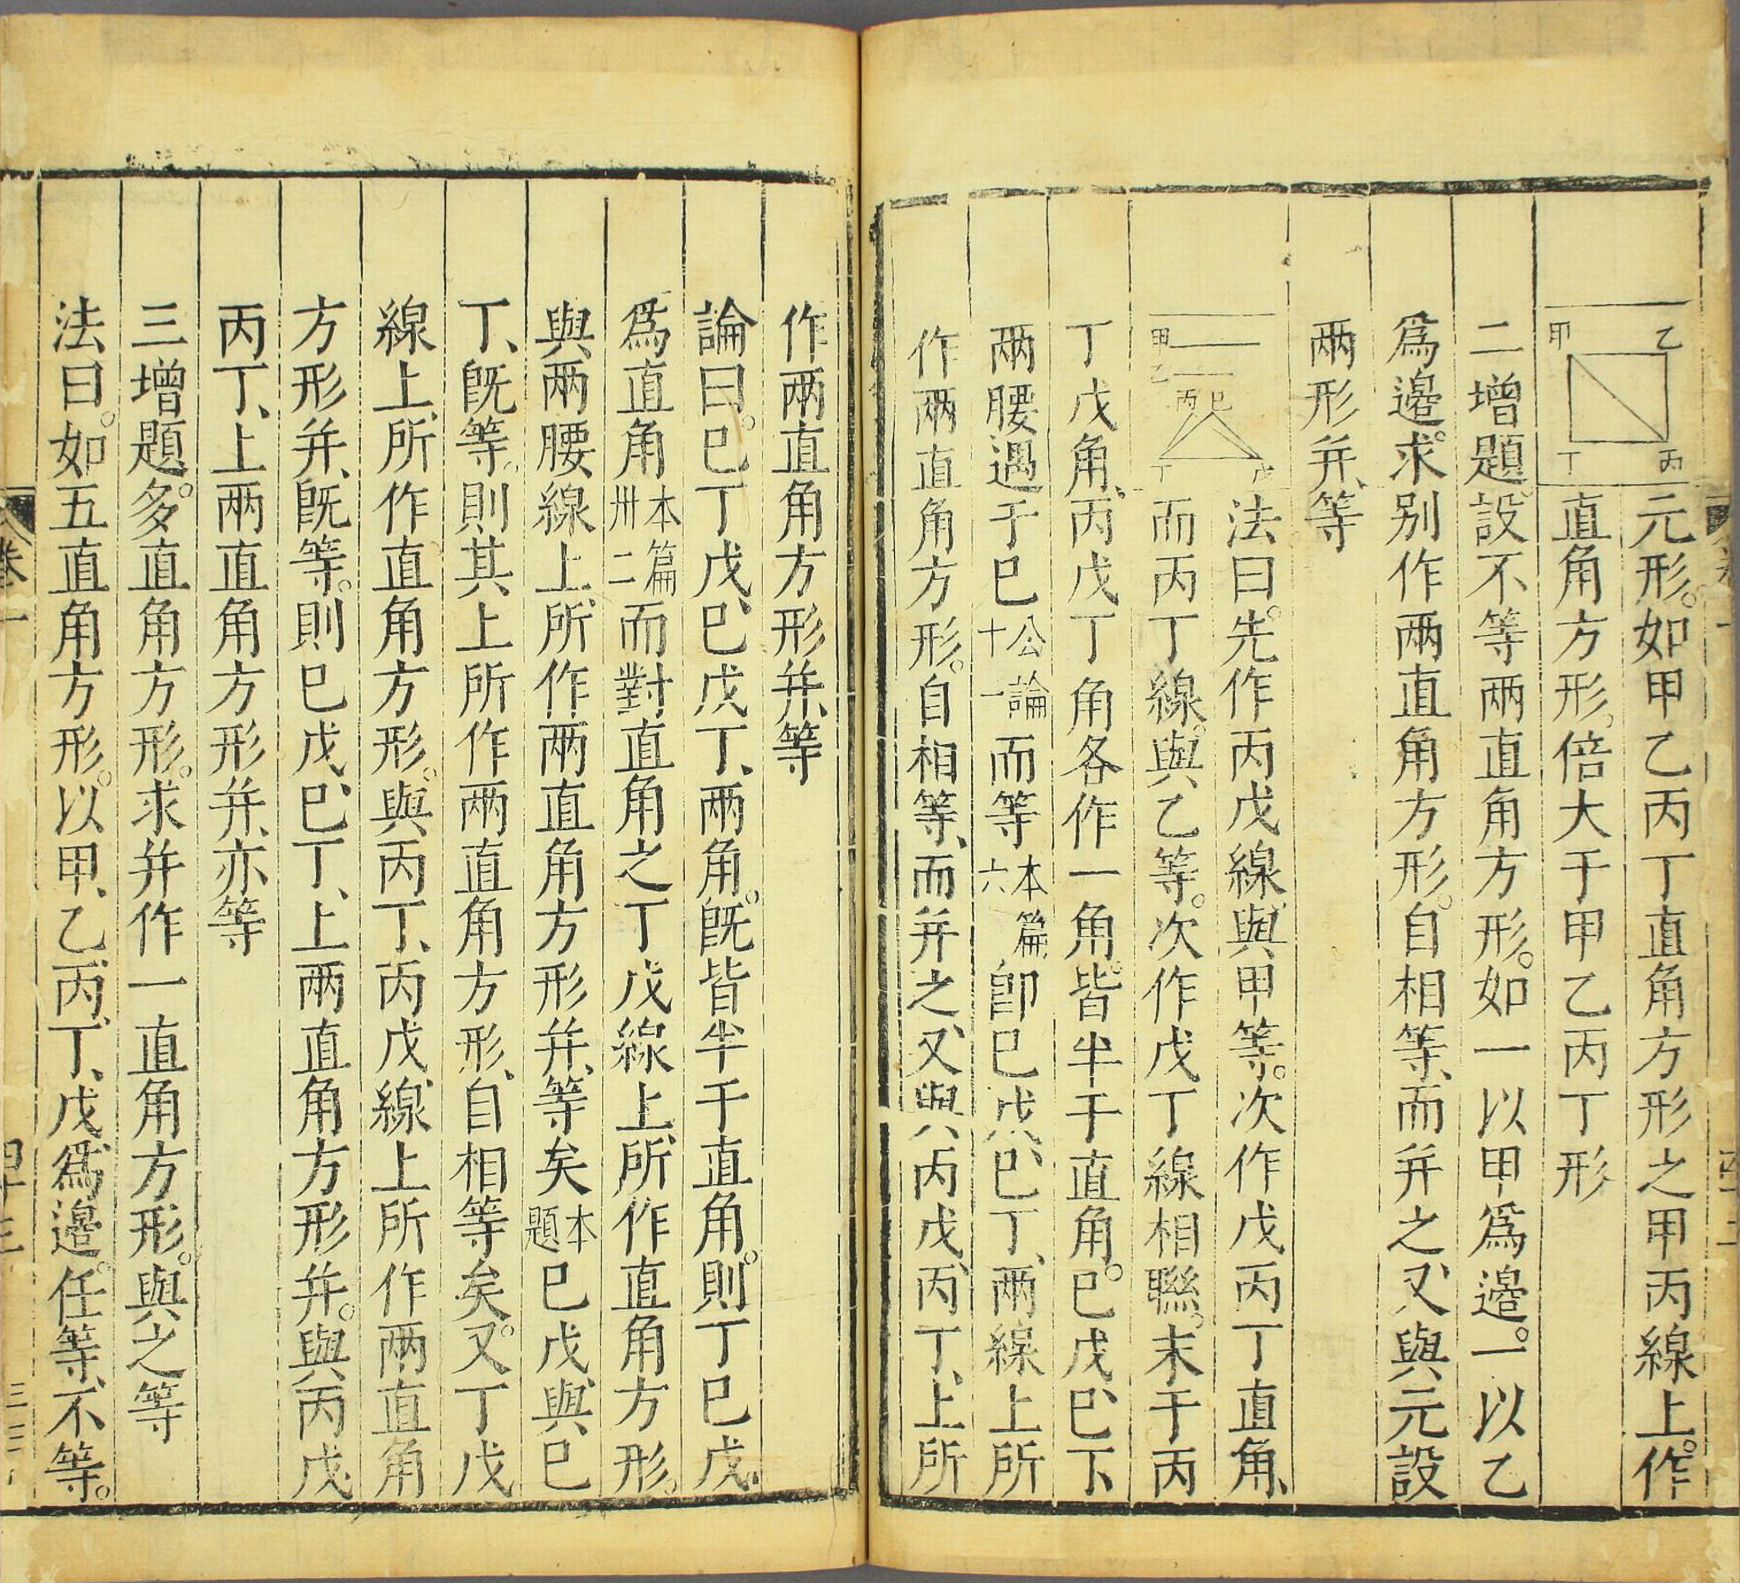 元形。如甲乙丙丁直角方形之甲丙線上。作
直角方形。倍大于甲乙丙丁形
甲 乙 丁 丙
二增題設不等兩直角方形。如一以甲爲邊。一以乙
爲邊。求別作兩直角方形。自相等、而并之、又與元設
兩形并、等
法曰。先作丙戊線與甲等。次作戊丙丁直角、
甲 乙 丙 巳 丁 戊
而丙丁線。與乙等。次作戊丁線相聯。末于丙
丁戊角、丙戊丁角各作一角。皆半于直角。巳戊、巳丁
兩腰遇于巳公論十一而等本篇六卽巳戊、巳丁、兩線上所
作兩直角方形。自相等、而并之、又與丙戊、丙丁、上所
作兩直角方形并、等
論曰。巳丁戊、巳戊丁、兩角。既皆半于直角。則丁巳戊、
爲直角本篇卅二而對直角之丁戊線上、所作直角方形。
與兩腰線上、所作兩直角方形并、等矣本題巳戊、與巳
丁、既等。則其上所作兩直角方形、自相等矣。又丁戊
線上、所作直角方形。與丙丁、丙戊、線上所作兩直角
方形并、既等。則巳戊、巳丁、上兩直角方形并。與丙戊、
丙丁、上兩直角方形并、亦等
三增題。多直角方形。求并作一直角方形。與之等
法曰。如五直角方形。以甲、乙、丙、丁、戊、爲邊。任等、不等。
卷一